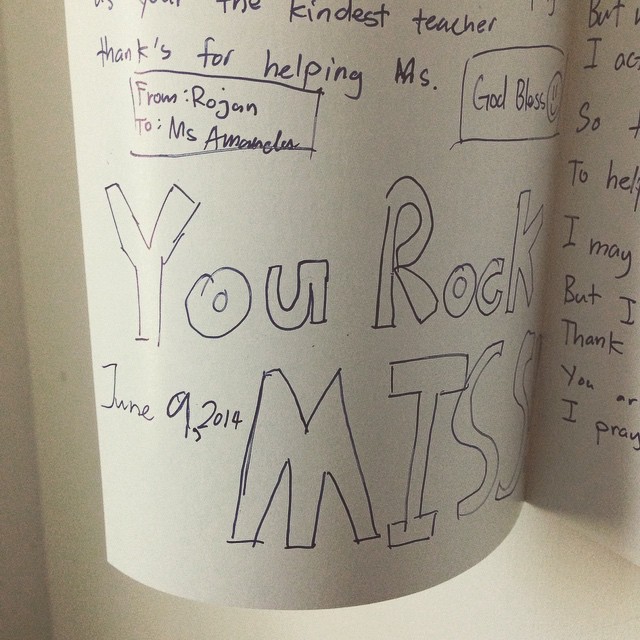 as your the kindest teacher
thank's for helping Ms.
From: Rojan
To: Ms Amanda
God Bless
You Rock
MISS
June 9, 2014
But
I
So
To help
I may
But I
Thank
You
I pray